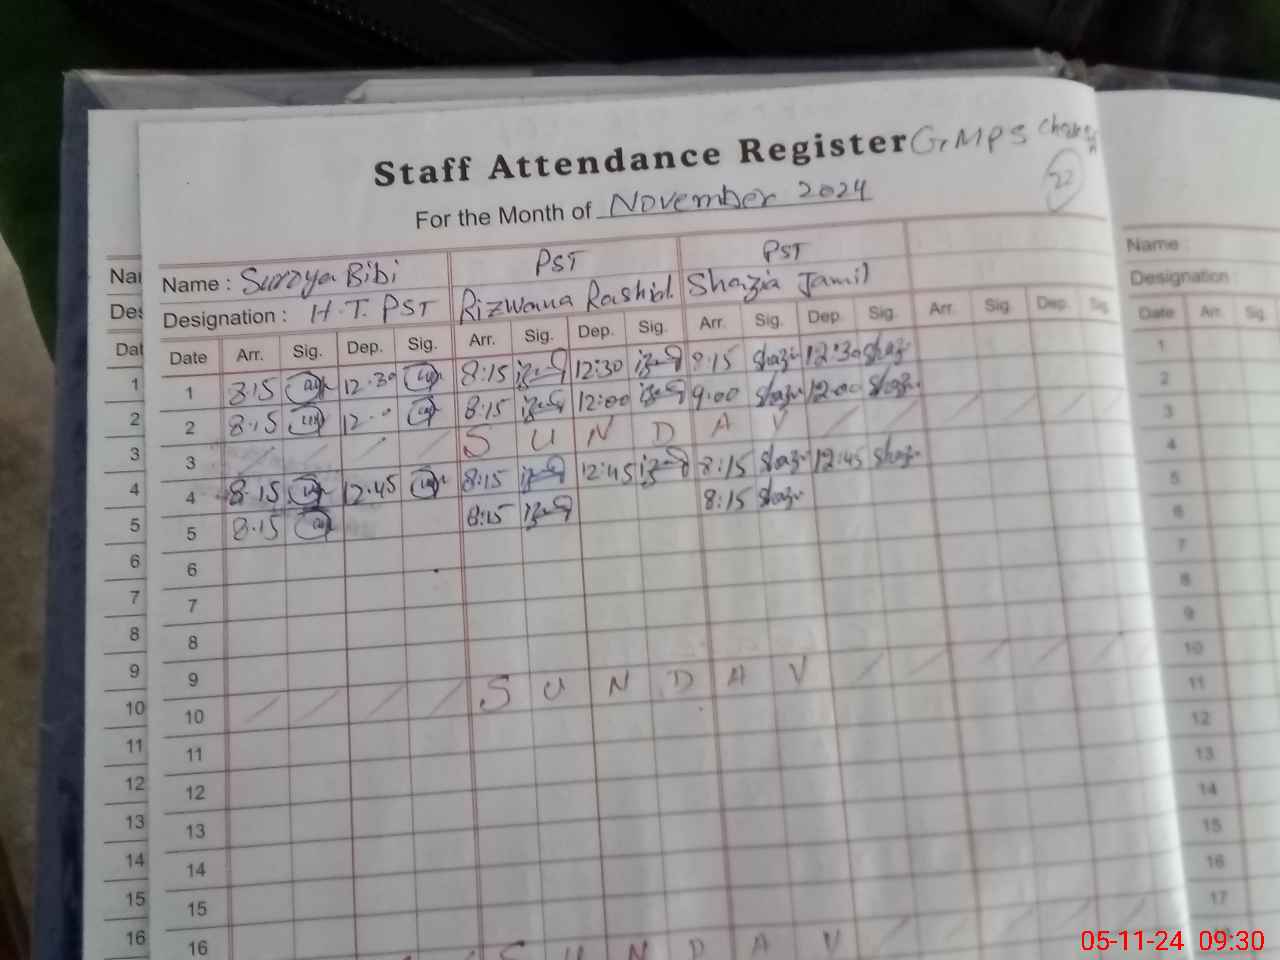 Staff Attendance Register GMPS
For the Month of November 2024
22
PST PST
Name : Surayya Bibi Rizwana Rashid Shazia Jamil
Designation : H.T. PST
Date Arr. Sig. Dep. Sig. Arr. Sig. Dep. Sig. Arr. Sig. Dep. Sig. Arr. Sig. Dep. Sig.
1 8:15 12:30 8:15 12:30 8:15 Shazi 12:30 Shazi
2 8:15 12:00 8:15 12:00 9:00 Shazi 12:00 Shazi
3 SUNDAY
4 8:15 12:45 8:15 12:45 8:15 Shazi 12:45 Shazi
5 8:15 8:15 8:15 Shazi
6
7
8
9
10 SUNDAY
11
12
13
14
15
16
SUNDAY
Nai
Des
Dat
1
2
3
4
5
6
7
8
9
10
11
12
13
14
15
16
Name :
Designation
Date Arr. Sig.
1
2
3
4
5
6
7
8
9
10
11
12
13
14
15
16
17
05-11-24 09:30